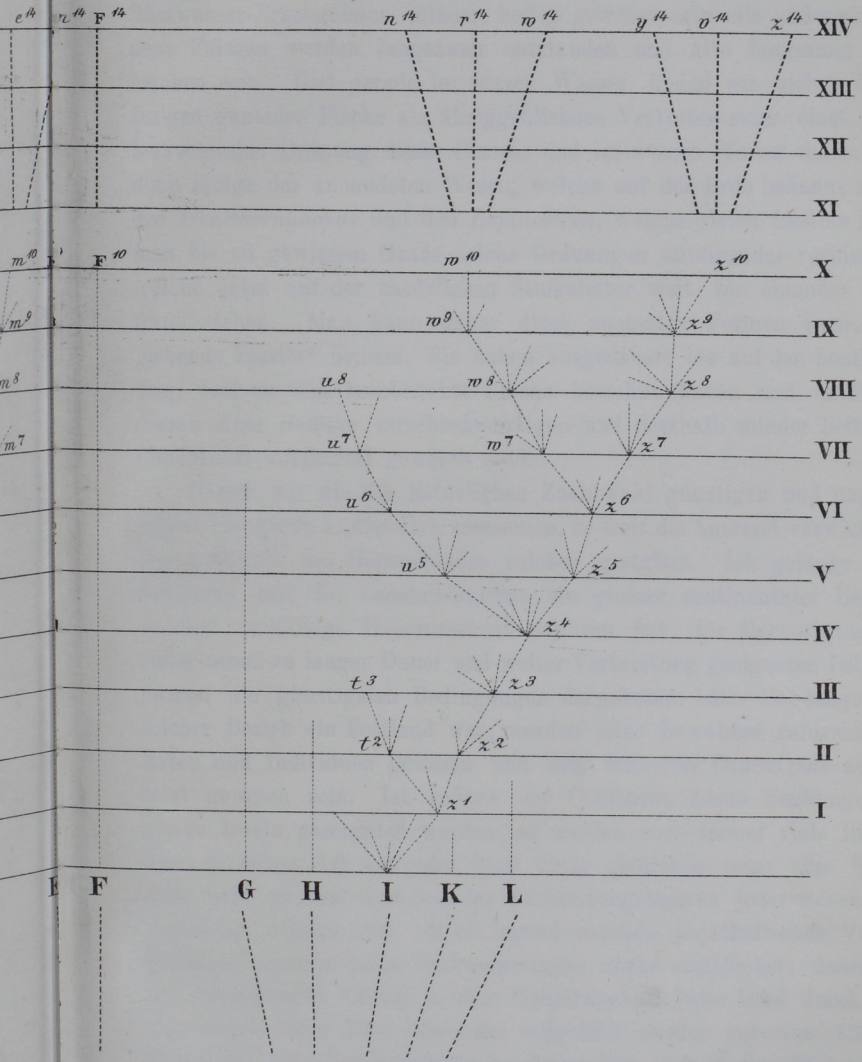 e¹⁴ F¹⁴ n¹⁴ r¹⁴ w¹⁴ y¹⁴ v¹⁴ z¹⁴ XIV
XIII
XII
XI
m¹⁰ F¹⁰ w¹⁰ z¹⁰ X
m⁹ w⁹ z⁹ IX
m⁸ u⁸ w⁸ z⁸ VIII
m⁷ u⁷ w⁷ z⁷ VII
u⁶ z⁶ VI
u⁵ z⁵ V
z⁴ IV
t³ z³ III
t² z² II
z¹ I
F G H I K L